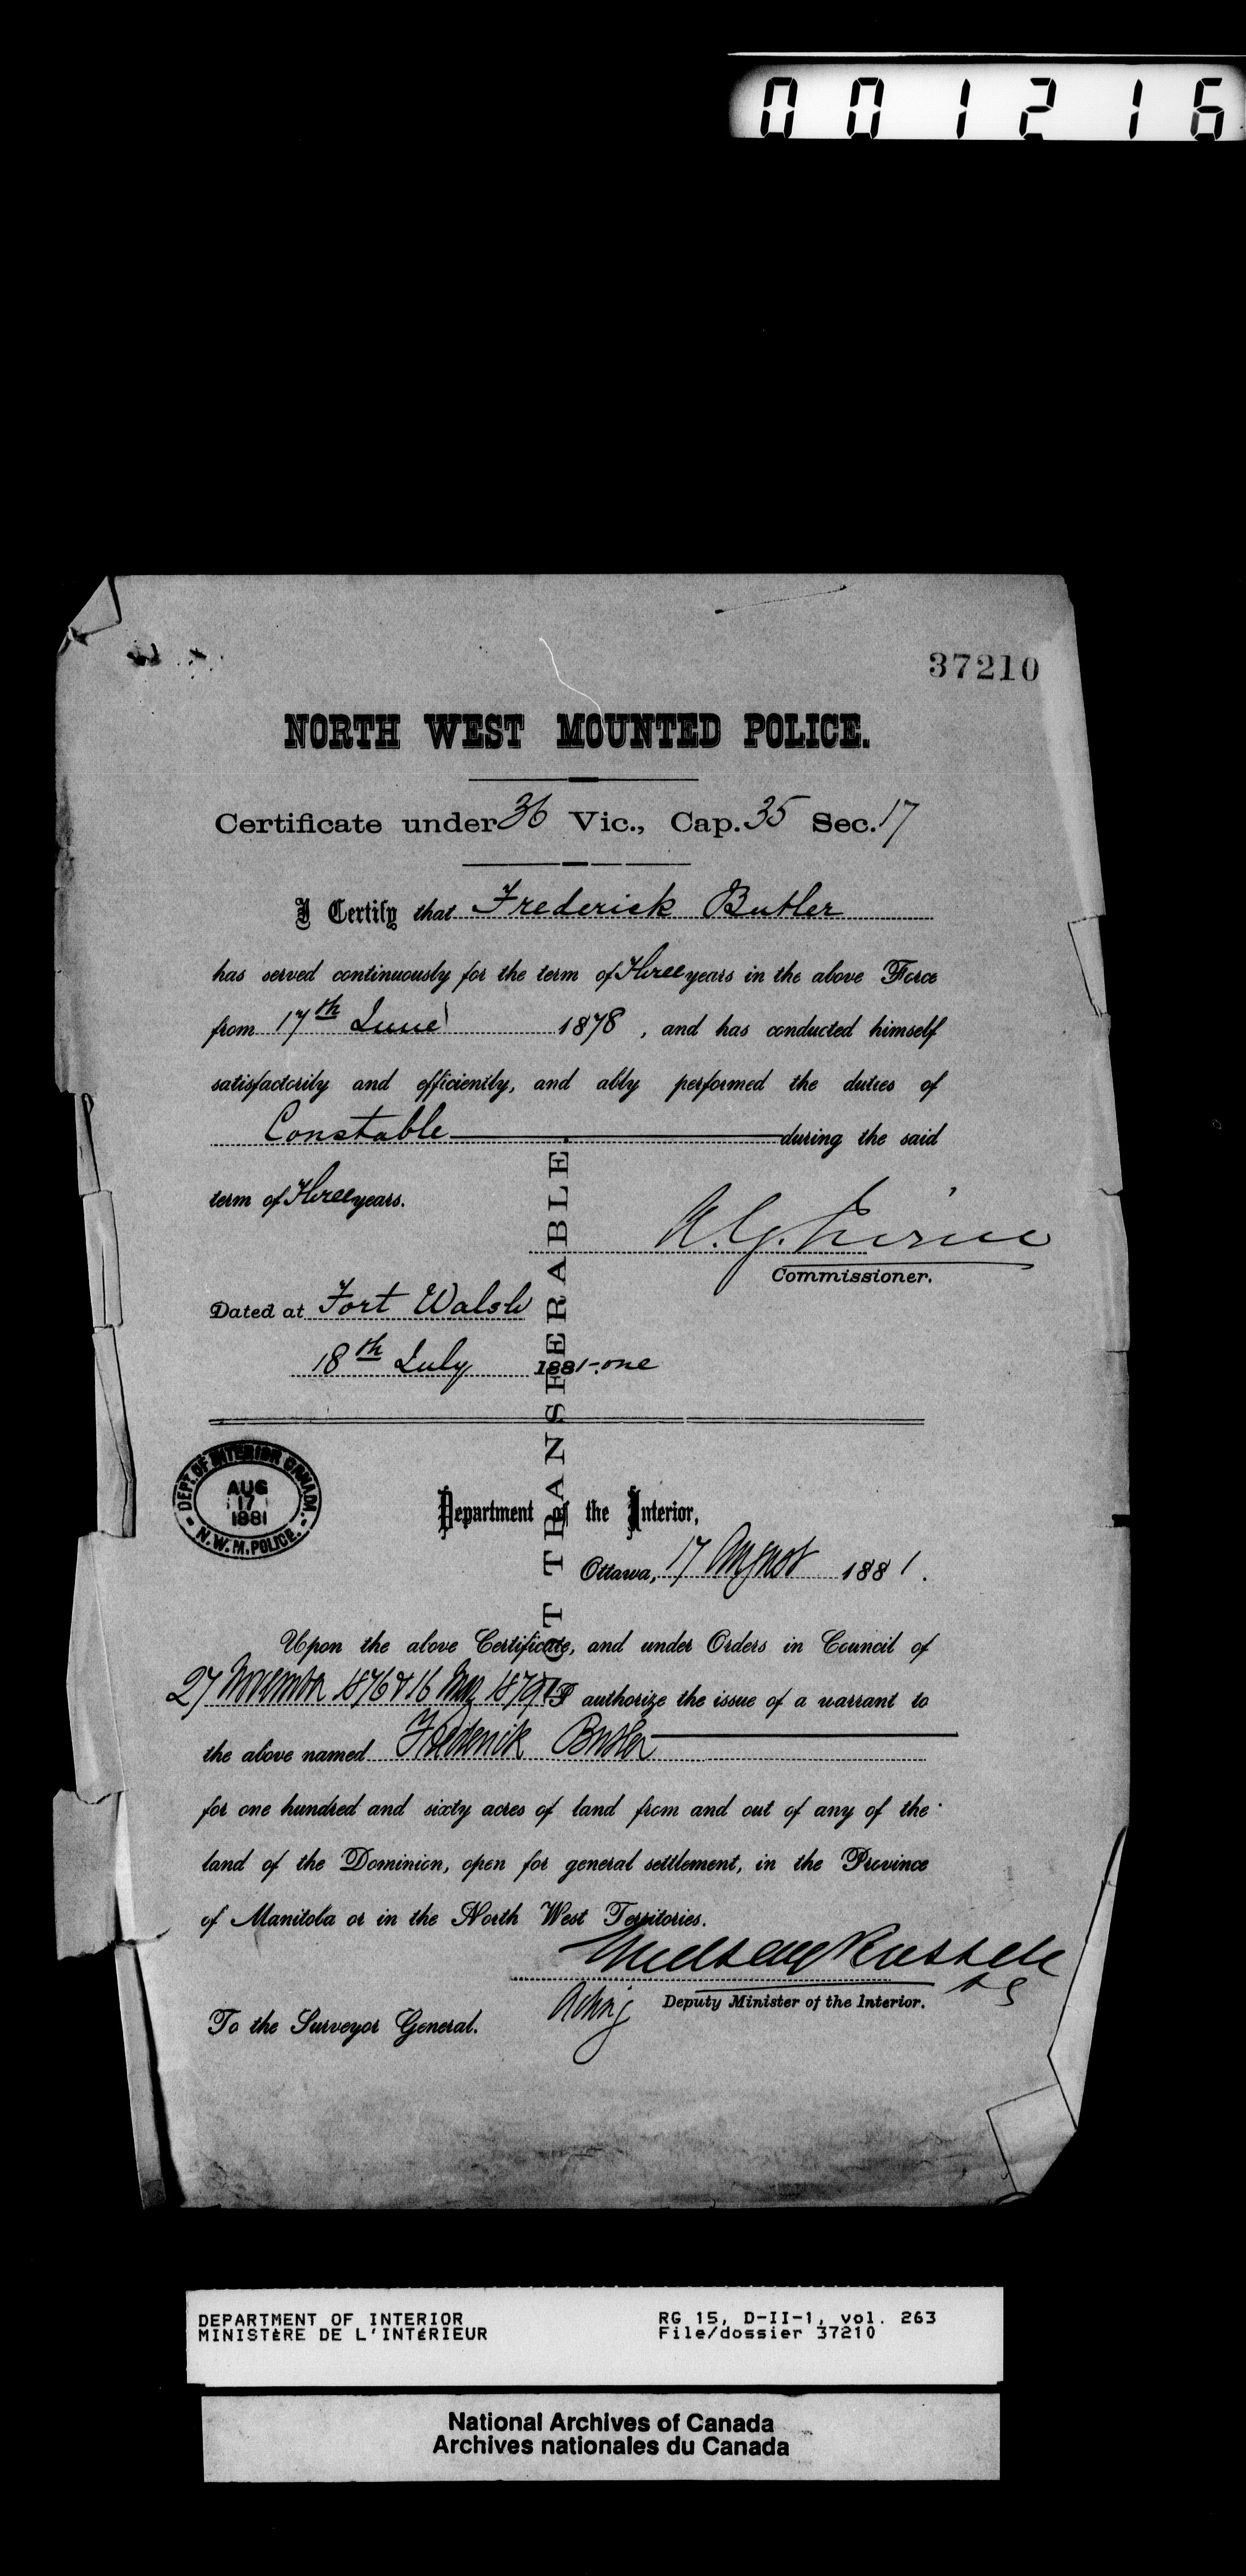 001216
37210
NORTH WEST MOUNTED POLICE.
Certificate under 36 Vic., Cap. 35 Sec. 17
I Certify that Frederick Butler
has served continuously for the term of Three years in the above Force
from 17th June 1878, and has conducted himself
satisfactorily and efficiently, and ably performed the duties of
Constable during the said
term of Three years.
Commissioner.
Dated at Fort Walsh
18th July 1881-one
NOT TRANSFERABLE
DEPT. OF INTERIOR CANADA.
AUG
17
1881
N.W.M. POLICE.
Department of the Interior,
Ottawa, 17 August 1881.
Upon the above Certificate, and under Orders in Council of
27 November 1876 & 16 May 1879 I authorize the issue of a warrant to
the above named Frederick Butler
for one hundred and sixty acres of land from and out of any of the
land of the Dominion, open for general settlement, in the Province
of Manitoba or in the North West Territories.
Lindsay Russell
Acting Deputy Minister of the Interior.
To the Surveyor General.
DEPARTMENT OF INTERIOR RG 15, D-II-1, vol. 263
MINISTÈRE DE L'INTÉRIEUR File/dossier 37210
National Archives of Canada
Archives nationales du Canada